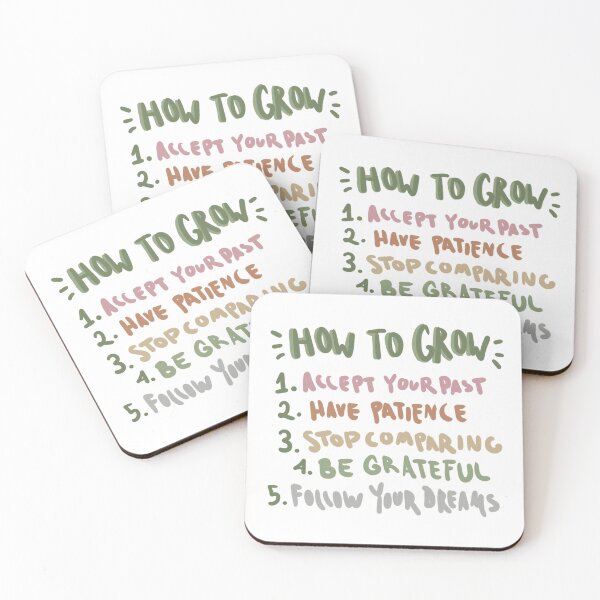 HOW TO GROW
1. ACCEPT YOUR PAST
2. HAVE PATIENCE
COMPARING
EFUL
HOW TO GROW
1. ACCEPT YOUR PAST
2. HAVE PATIENCE
3. STOP COMPARING
4. BE GRATEFUL
MS
HOW TO GROW
1. ACCEPT YOUR PAST
2. HAVE PATIENCE
3. STOP COMPARING
4. BE GRATE
5. FOLLOW YOUR
HOW TO GROW
1. ACCEPT YOUR PAST
2. HAVE PATIENCE
3. STOP COMPARING
4. BE GRATEFUL
5. FOLLOW YOUR DREAMS